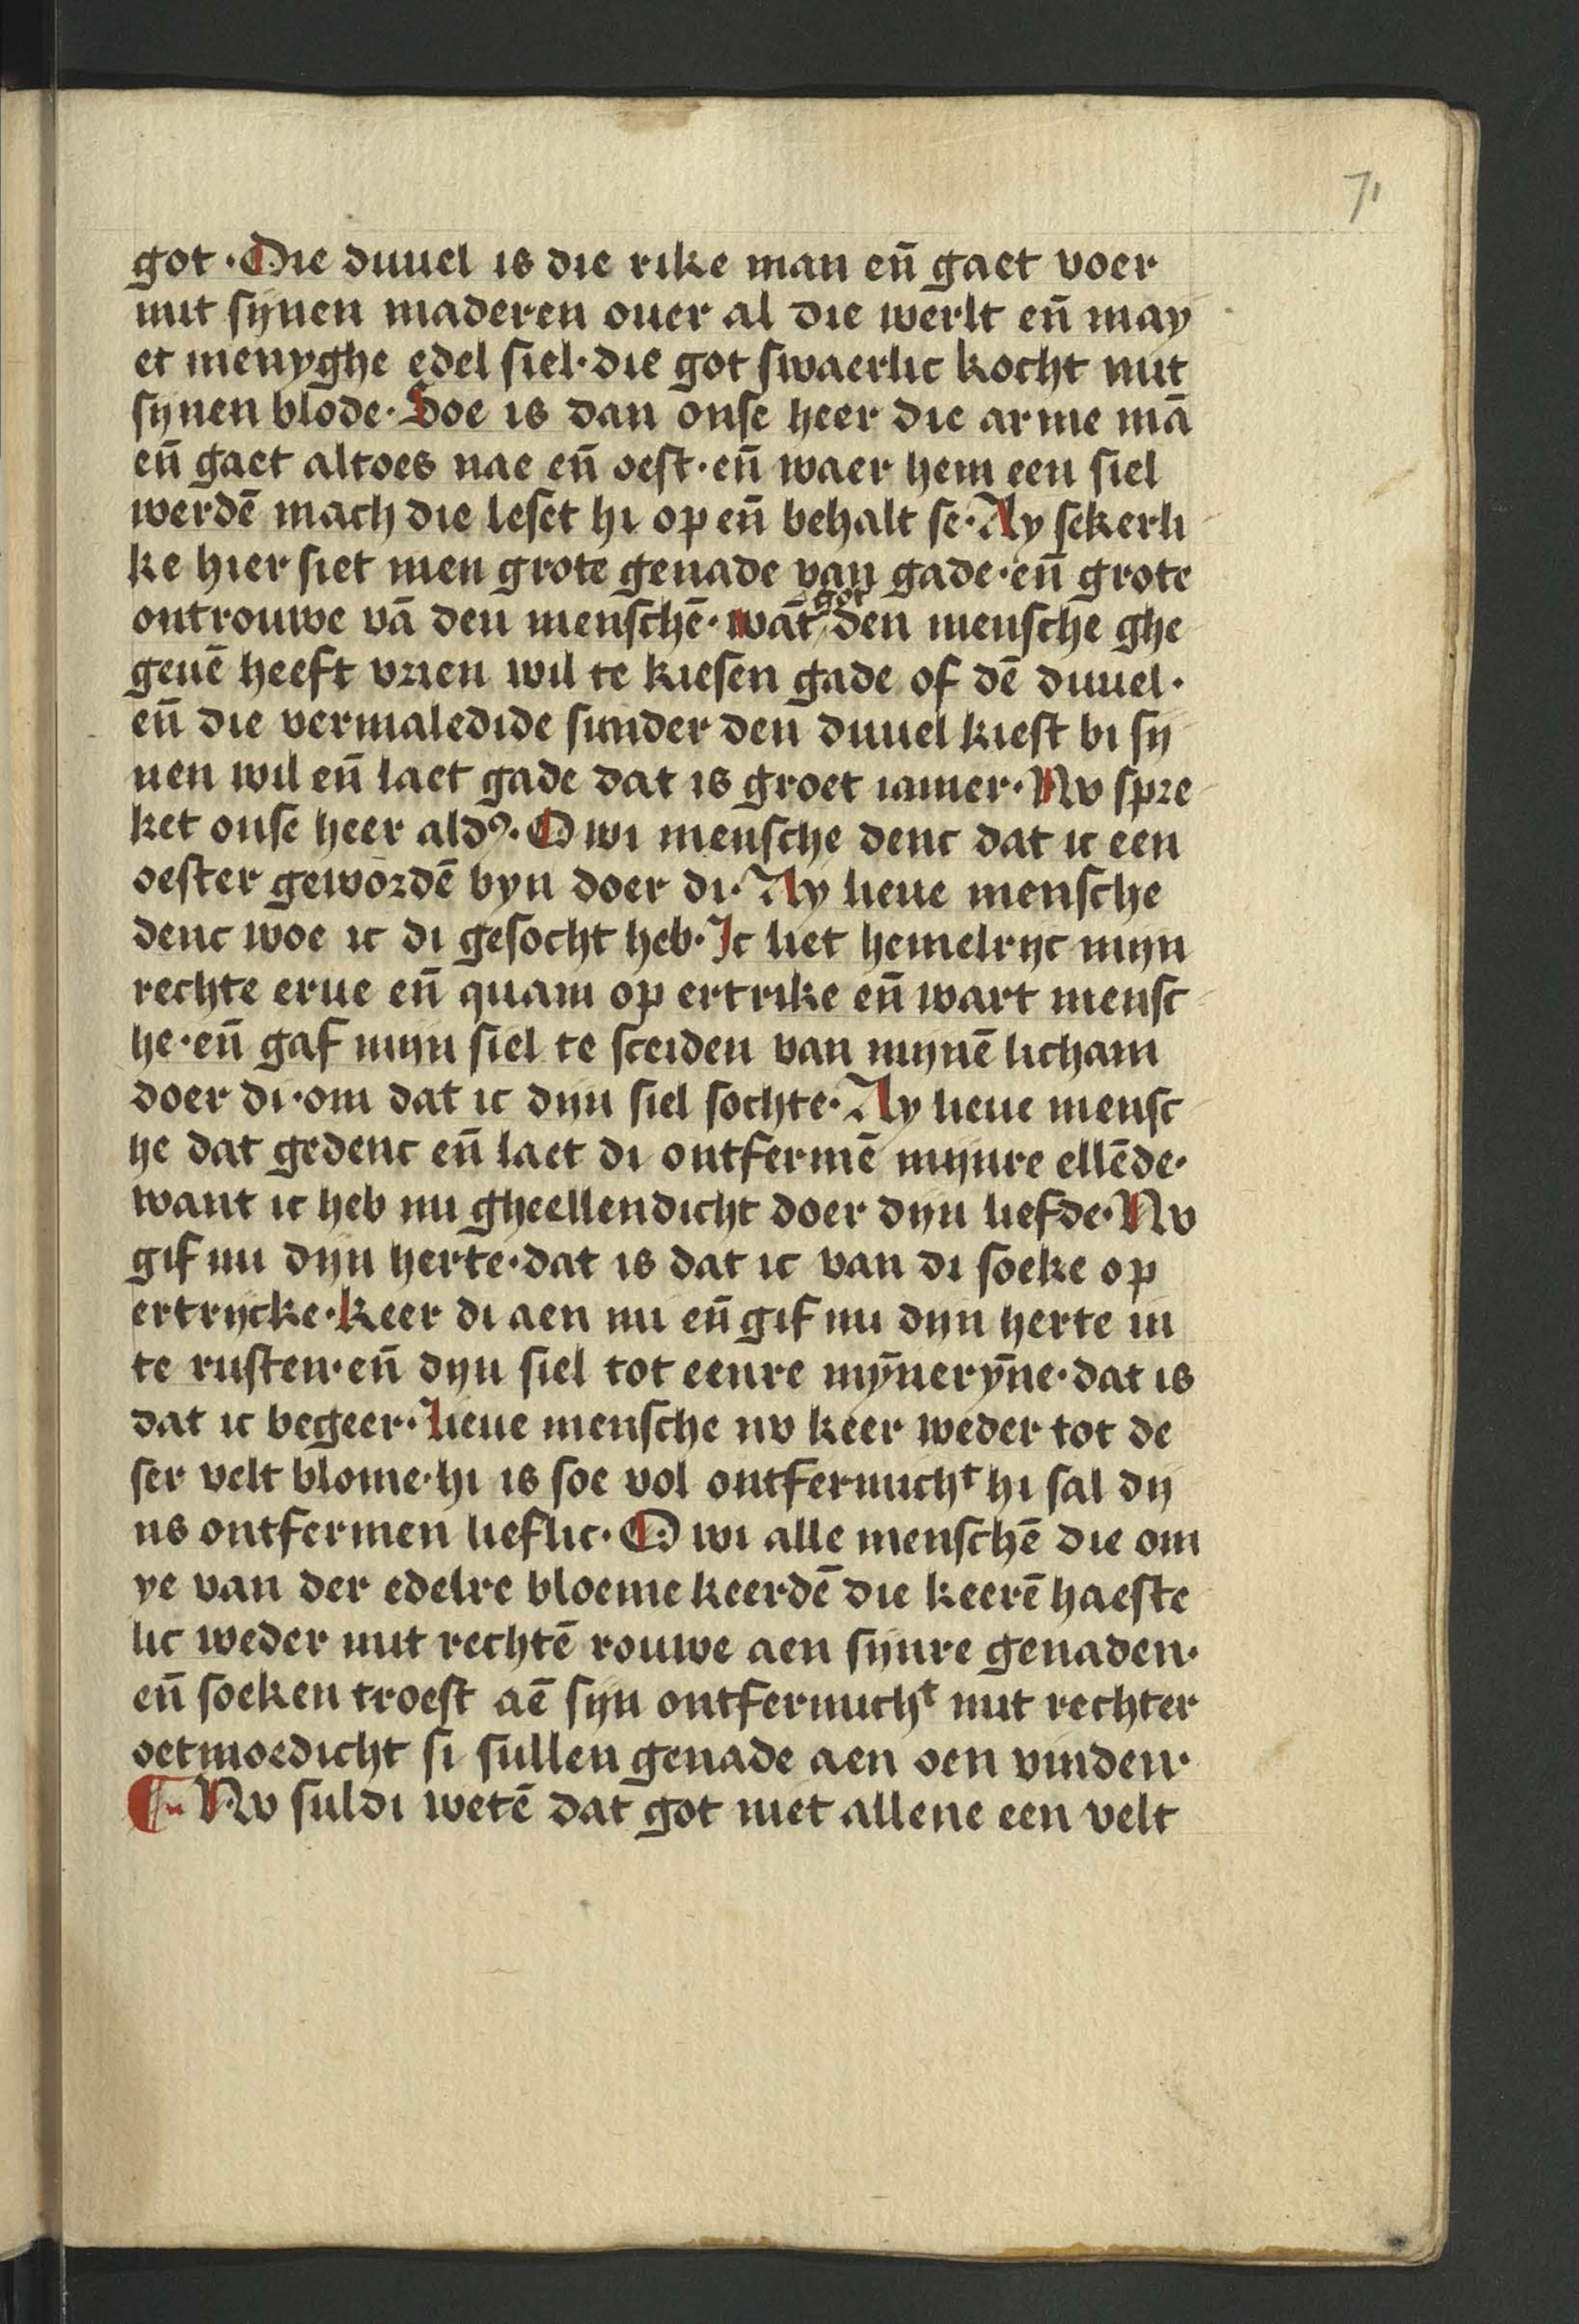 71
got · Die duuel is die rike man en̄ gaet voer
mit sijnen maderen ouer al die werlt en̄ may
et menyghe edel siel · die got swaerlic kocht mit
sijnen blode · Soe is dan onse heer die arme mā
en̄ gaet altoes nae en̄ oest · en̄ waer hem een siel
werdē mach die leset hi op en̄ behalt se · Ay sekerli
ke hier siet men grote genade van gade · en̄ grote
got
ontrouwe vā den menschē · wāt den mensche ghe
geuē heeft vrien wil te kiesen gade of dē duuel ·
en̄ die vermaledide sunder den duuel kiest bi sij
nen wil en̄ laet gade dat is groet iamer · Nv spre
ket onse heer aldꝰ · O wi mensche denc dat ic een
oester gewordē byn doer di · Ay lieue mensche
denc woe ic di gesocht heb · Ic liet hemelrijc mijn
rechte erue en̄ quam op ertrike en̄ wart mensc
he · en̄ gaf mijn siel te sceiden van mijnē licham
doer di · om dat ic dijn siel sochte · Ay lieue mensc
he dat gedenc en̄ laet di ontfermē mijnre ellēde ·
want ic heb mi gheellendicht doer dijn liefde · Nv
gif mi dijn herte · dat is dat ic van di soeke op
ertrijcke · keer di aen mi en̄ gif mi dijn herte in
te rusten · en̄ dijn siel tot eenre mȳnerȳne · dat is
dat ic begeer · Lieue mensche nv keer weder tot de
ser velt blome · hi is soe vol ontfermichᵗ hi sal dij
ns ontfermen lieflic · O wi alle menschē die om
ye van der edelre bloeme keerdē die keerē haeste
lic weder mit rechtē rouwe aen sijnre genaden ·
en̄ soeken troest aē sijn ontfermichᵗ mit rechter
oetmoedicht si sullen genade aen oen vinden ·
¶ Nv suldi wetē dat got niet allene een velt